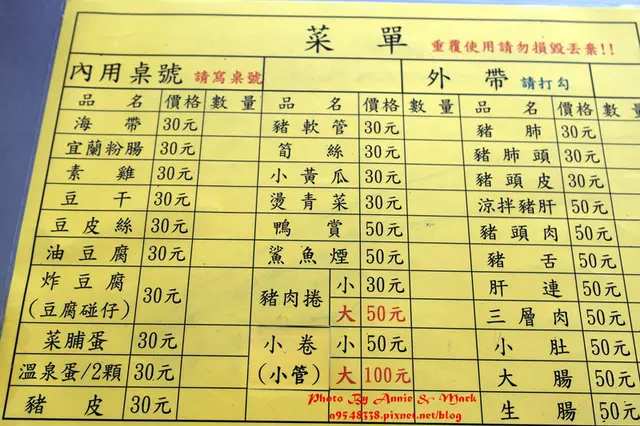 菜單 重覆使用請勿損毀丟棄!!
內用桌號 請寫桌號 外帶 請打勾
品名 價格 數量 品名 價格 數量 品名 價格 數量
海帶 30元 豬軟管 30元 豬肺 30元
宜蘭粉腸 30元 筍絲 30元 豬肺頭 30元
素雞 30元 小黃瓜 30元 豬頭皮 30元
豆干 30元 燙青菜 30元 涼拌豬肝 50元
豆皮絲 30元 鴨賞 50元 豬頭肉 50元
油豆腐 30元 鯊魚煙 50元 豬舌 50元
炸豆腐(豆腐碰仔) 30元 豬肉捲 小 30元 肝連 50元
大 50元 三層肉 50元
菜脯蛋 30元 小卷(小管) 小 50元 小肚 50元
溫泉蛋/2顆 30元 大 100元 大腸 50元
豬皮 30元 生腸 50元
Photo By Annie & Mark
a9548338.pixnet.net/blog